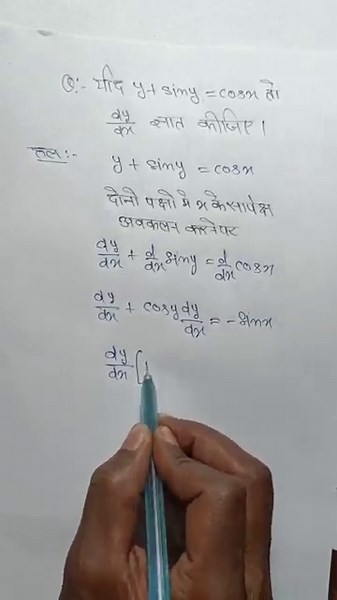 Q:- यदि y + siny = cosx तो
dy/dx ज्ञात कीजिए।
हल:- y + siny = cosx
दोनो पक्षो मे x के सापेक्ष
अवकलन करनेपर
dy/dx + d/dx siny = d/dx cosx
dy/dx + cosy dy/dx = -sinx
dy/dx [1